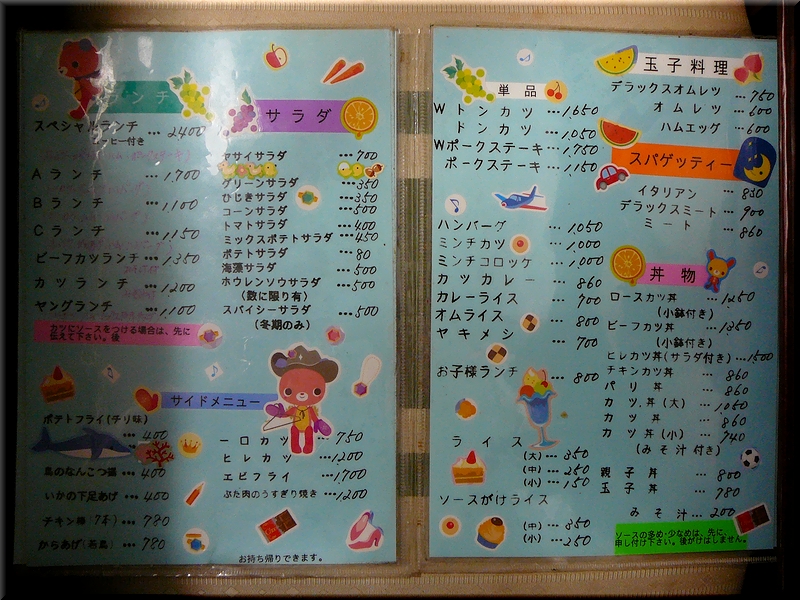 ランチ
スペシャルランチ … 2,400
コーヒー付き
Aランチ … 1,700
Bランチ … 1,100
Cランチ … 1,150
ビーフカツランチ … 1,350
カツランチ … 1,200
ヤングランチ … 1,100
カツにソースをつける場合は、先に
伝えて下さい。後
サラダ
ヤサイサラダ … 700
グリーンサラダ … 350
ひじきサラダ … 350
コーンサラダ … 500
トマトサラダ … 400
ミックスポテトサラダ … 450
ポテトサラダ … 80
海藻サラダ … 500
ホウレンソウサラダ … 500
(数に限り有)
スパイシーサラダ … 500
(冬期のみ)
サイドメニュー
ポテトフライ(チリ味)
… 400
鳥のなんこつ … 400
いかの下足あげ … 400
チキン棒(7本) … 780
からあげ(若鳥) … 780
一口カツ … 750
ヒレカツ … 1,200
エビフライ … 1,700
ぶた肉のうすぎり焼き … 1,200
お持ち帰りできます。
単品
Wトンカツ … 1,650
ドンカツ … 1,050
Wポークステーキ … 1,750
ポークステーキ … 1,150
ハンバーグ … 1,050
ミンチカツ … 1,000
ミンチコロッケ … 1,000
カツカレー … 860
カレーライス … 700
オムライス … 800
ヤキメシ … 700
お子様ランチ … 800
ライス
(大) … 350
(中) … 250
(小) … 150
ソースがけライス
(中) … 350
(小) … 250
玉子料理
デラックスオムレツ … 750
オムレツ … 600
ハムエッグ … 600
スパゲッティー
イタリアン … 830
デラックスミート … 900
ミート … 860
丼物
ロースカツ丼 … 1250
(小鉢付き)
ビーフカツ丼 … 1350
(小鉢付き)
ヒレカツ丼(サラダ付き) … 1500
チキンカツ丼 … 860
パリ丼 … 860
カツ丼(大) … 1,050
カツ丼 … 860
カツ丼(小) … 740
(みそ汁付き)
親子丼 … 800
玉子丼 … 780
みそ汁 … 200
ソースの多め・少なめは、先に、
申し付け下さい。後がけはしません。